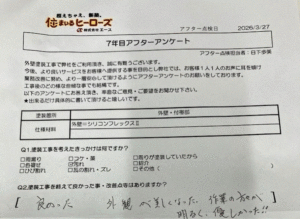 超えちゃえ、客期。
住まいるヒーローズ
株式会社エース
アフター点検日 2026/3/27
7年目アフターアンケート
アフター点検担当者:日下歩美
外壁塗装工事で弊社をご利用頂き、誠に有難うございます。
今後、より良いサービスをお客様へ提供する事を目的とし弊社では、お客様1人1人のお声に耳を傾け
業務改善に努め、より一層安心して頂けるようにアフターアンケートのお願いをしております。
工事後のどの様な些細な事でも結構です。
以下のアンケートにお答え頂き、率直なご意見・ご要望をお聞かせ下さい。
★出来るだけ具体的に書いて頂けると幸いです。
塗装箇所 外壁・付帯部
仕様材料 外壁=シリコンフレックスⅡ
Q1.塗装工事を考えたきっかけは何ですか?
□雨漏り □コケ・藻 □周りが塗装していたから
□色褪せ □汚れ □紹介
□ひび割れ □瓦の割れ・ズレ □その他( )
Q2.塗装工事を終えて良かった事・改善点等はありますか?
良かった 外観が美しくなった 作業の方々が
明るく、優しかった!!